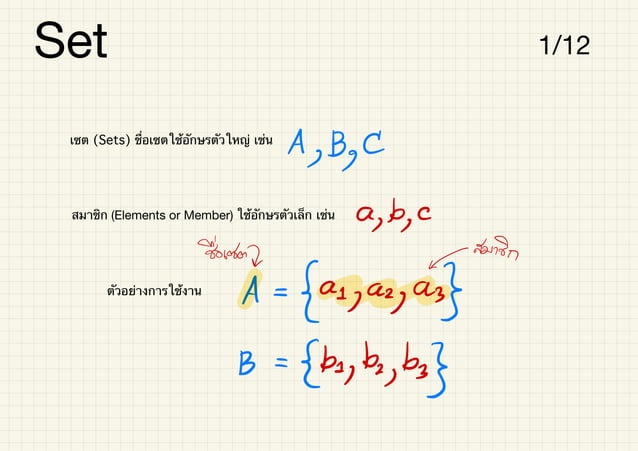 Set
1/12
เซต (Sets) ชื่อเซตใช้อักษรตัวใหญ่ เช่น A, B, C
สมาชิก (Elements or Member) ใช้อักษรตัวเล็ก เช่น a, b, c
ชื่อเซต สมาชิก
ตัวอย่างการใช้งาน A = {a₁, a₂, a₃}
B = {b₁, b₂, b₃}